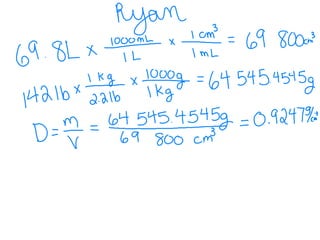 Ryan
69.8L × 1000mL/1L × 1 cm³/1 mL = 69 800cm³
142lb × 1 kg/2.2lb × 1000g/1kg = 64 545 4545g
D = m/V = 64 545.4545g/69 800 cm³ = 0.9247g/cm³